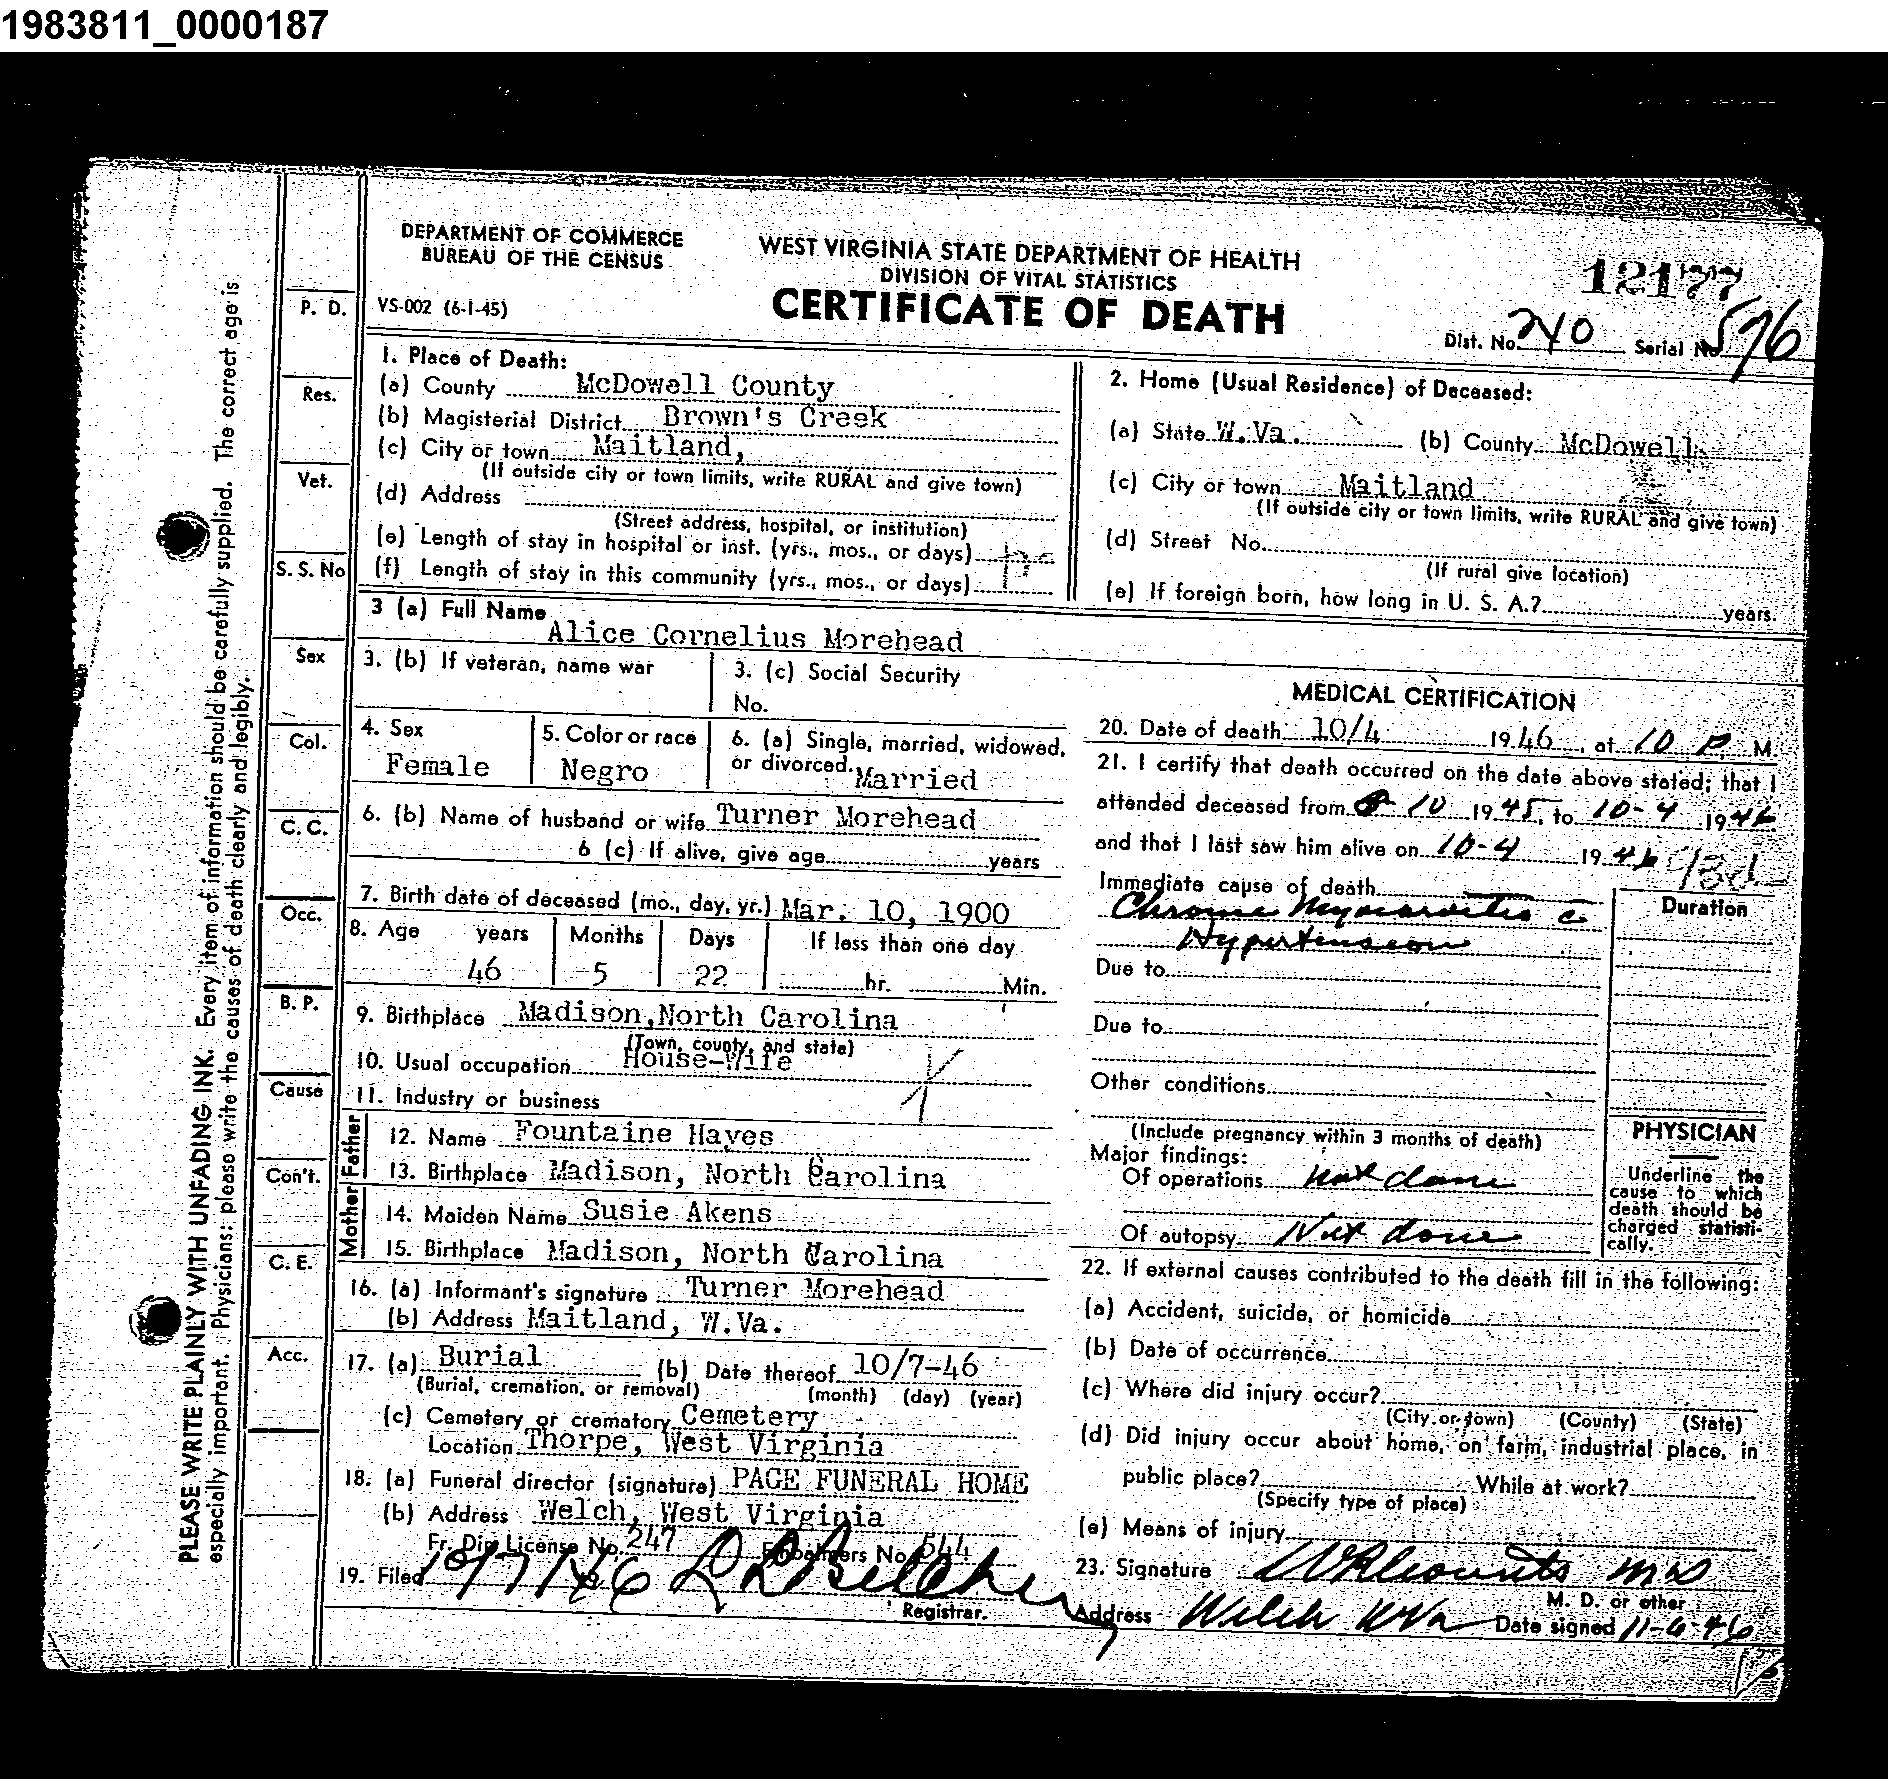 1983811_0000187
DEPARTMENT OF COMMERCE
BUREAU OF THE CENSUS
VS-002 (6-1-45)
WEST VIRGINIA STATE DEPARTMENT OF HEALTH
DIVISION OF VITAL STATISTICS
CERTIFICATE OF DEATH
12177
Dist. No. 240 Serial No 576
PLEASE WRITE PLAINLY WITH UNFADING INK. Every item of information should be carefully supplied. The correct age is
especially important. Physicians: please write the causes of death clearly and legibly.
P. D.
Res.
Vet.
S. S. No
Sex
Col.
C. C.
Occ.
B. P.
Cause
Con't.
C. E.
Acc.
1. Place of Death:
(a) County McDowell County
(b) Magisterial District Brown's Creek
(c) City or town Maitland,
(If outside city or town limits, write RURAL and give town)
(d) Address
(Street address, hospital, or institution)
(e) Length of stay in hospital or inst. (yrs., mos., or days)
(f) Length of stay in this community (yrs., mos., or days)
2. Home (Usual Residence) of Deceased:
(a) State W.Va. (b) County McDowell
(c) City or town Maitland
(If outside city or town limits, write RURAL and give town)
(d) Street No.
(If rural give location)
(e) If foreign born, how long in U. S. A.? years.
3 (a) Full Name Alice Cornelius Morehead
3. (b) If veteran, name war
3. (c) Social Security
No.
4. Sex
Female
5. Color or race
Negro
6. (a) Single, married, widowed,
or divorced. Married
6. (b) Name of husband or wife Turner Morehead
6 (c) If alive, give age years
7. Birth date of deceased (mo., day, yr.) Mar. 10, 1900
8. Age years Months Days If less than one day
46 5 22 hr. Min.
9. Birthplace Madison, North Carolina
(Town, county, and state)
10. Usual occupation House-Wife
11. Industry or business
Father
12. Name Fountaine Hayes
13. Birthplace Madison, North Carolina
Mother
14. Maiden Name Susie Akens
15. Birthplace Madison, North Carolina
16. (a) Informant's signature Turner Morehead
(b) Address Maitland, W.Va.
17. (a) Burial (b) Date thereof 10/7-46
(Burial, cremation, or removal) (month) (day) (year)
(c) Cemetery or crematory Cemetery
Location Thorpe, West Virginia
18. (a) Funeral director (signature) PAGE FUNERAL HOME
(b) Address Welch, West Virginia
Fr. Dir. License No. 247 Embalmers No. 544
19. Filed 10/7/46 L L Belcher
Registrar.
MEDICAL CERTIFICATION
20. Date of death 10/4 1946, at 10 P. M
21. I certify that death occurred on the date above stated; that I
attended deceased from 10 1945, to 10-4 1946
and that I last saw him alive on 10-4 1946 93d
Immediate cause of death
Chronic Myocarditis c
Hypertension
Duration
Due to
Due to
Other conditions
(Include pregnancy within 3 months of death)
Major findings:
Of operations not done
Of autopsy Not done
PHYSICIAN
Underline the
cause to which
death should be
charged statisti-
cally.
22. If external causes contributed to the death fill in the following:
(a) Accident, suicide, or homicide
(b) Date of occurrence
(c) Where did injury occur?
(City or town) (County) (State)
(d) Did injury occur about home, on farm, industrial place, in
public place? While at work?
(Specify type of place)
(e) Means of injury
23. Signature MD
M. D. or other
Address Welch W Va Date signed 11-6-46